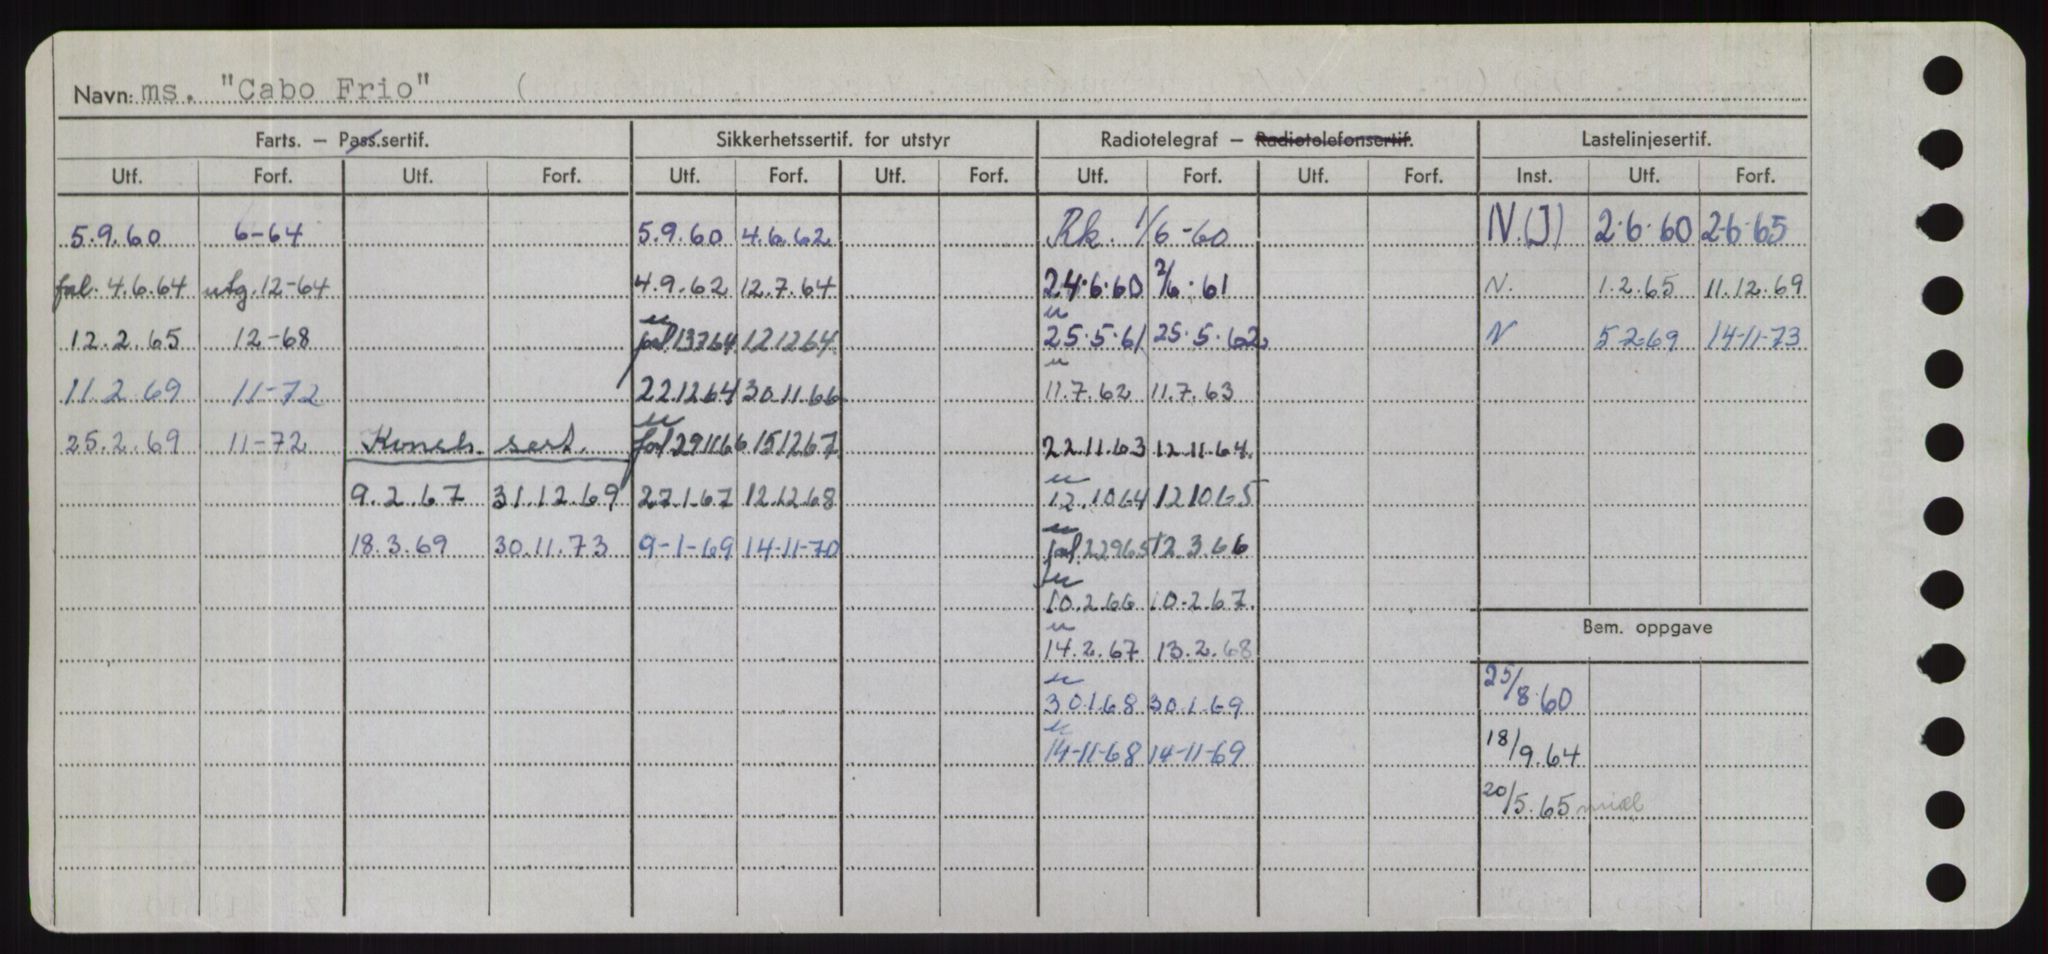 Navn: ms. "Cabo Frio" (
Farts. — Pass.sertif. Sikkerhetssertif. for utstyr Radiotelegraf — Radiotelefonsertif. Lastelinjesertif.
Utf. Forf. Utf. Forf. Utf. Forf. Utf. Forf. Utf. Forf. Utf. Forf. Inst. Utf. Forf.
5.9.60 6-64 5.9.60 4.6.62 Rk. 1/6-60 N.(J) 2.6.60 2.6.65
4.6.64 utg. 12-64 4.9.62 12.7.64 24.6.60 2/6.61 N. 1.2.65 11.12.69
12.2.65 12-68 13764 121264 25.5.61 25.5.62 N 5.2.69 14-11-73
11.2.69 11-72 22.12.64 30.11.66 11.7.62 11.7.63
25.2.69 11-72 Konstr. sert. 291166 151267 22.11.63 12.11.64.
9.2.67 31.12.69 27.1.67 12.12.68 12.10.64 12.10.65
18.3.69 30.11.73 9-1-69 14-11-70 22965 12.3.66
10.2.66 10.2.67.
Bem. oppgave
14.2.67 13.2.68
25/8.60
30.1.68 30.1.69
18/9.64
14-11-68 14-11-69
20/5.65